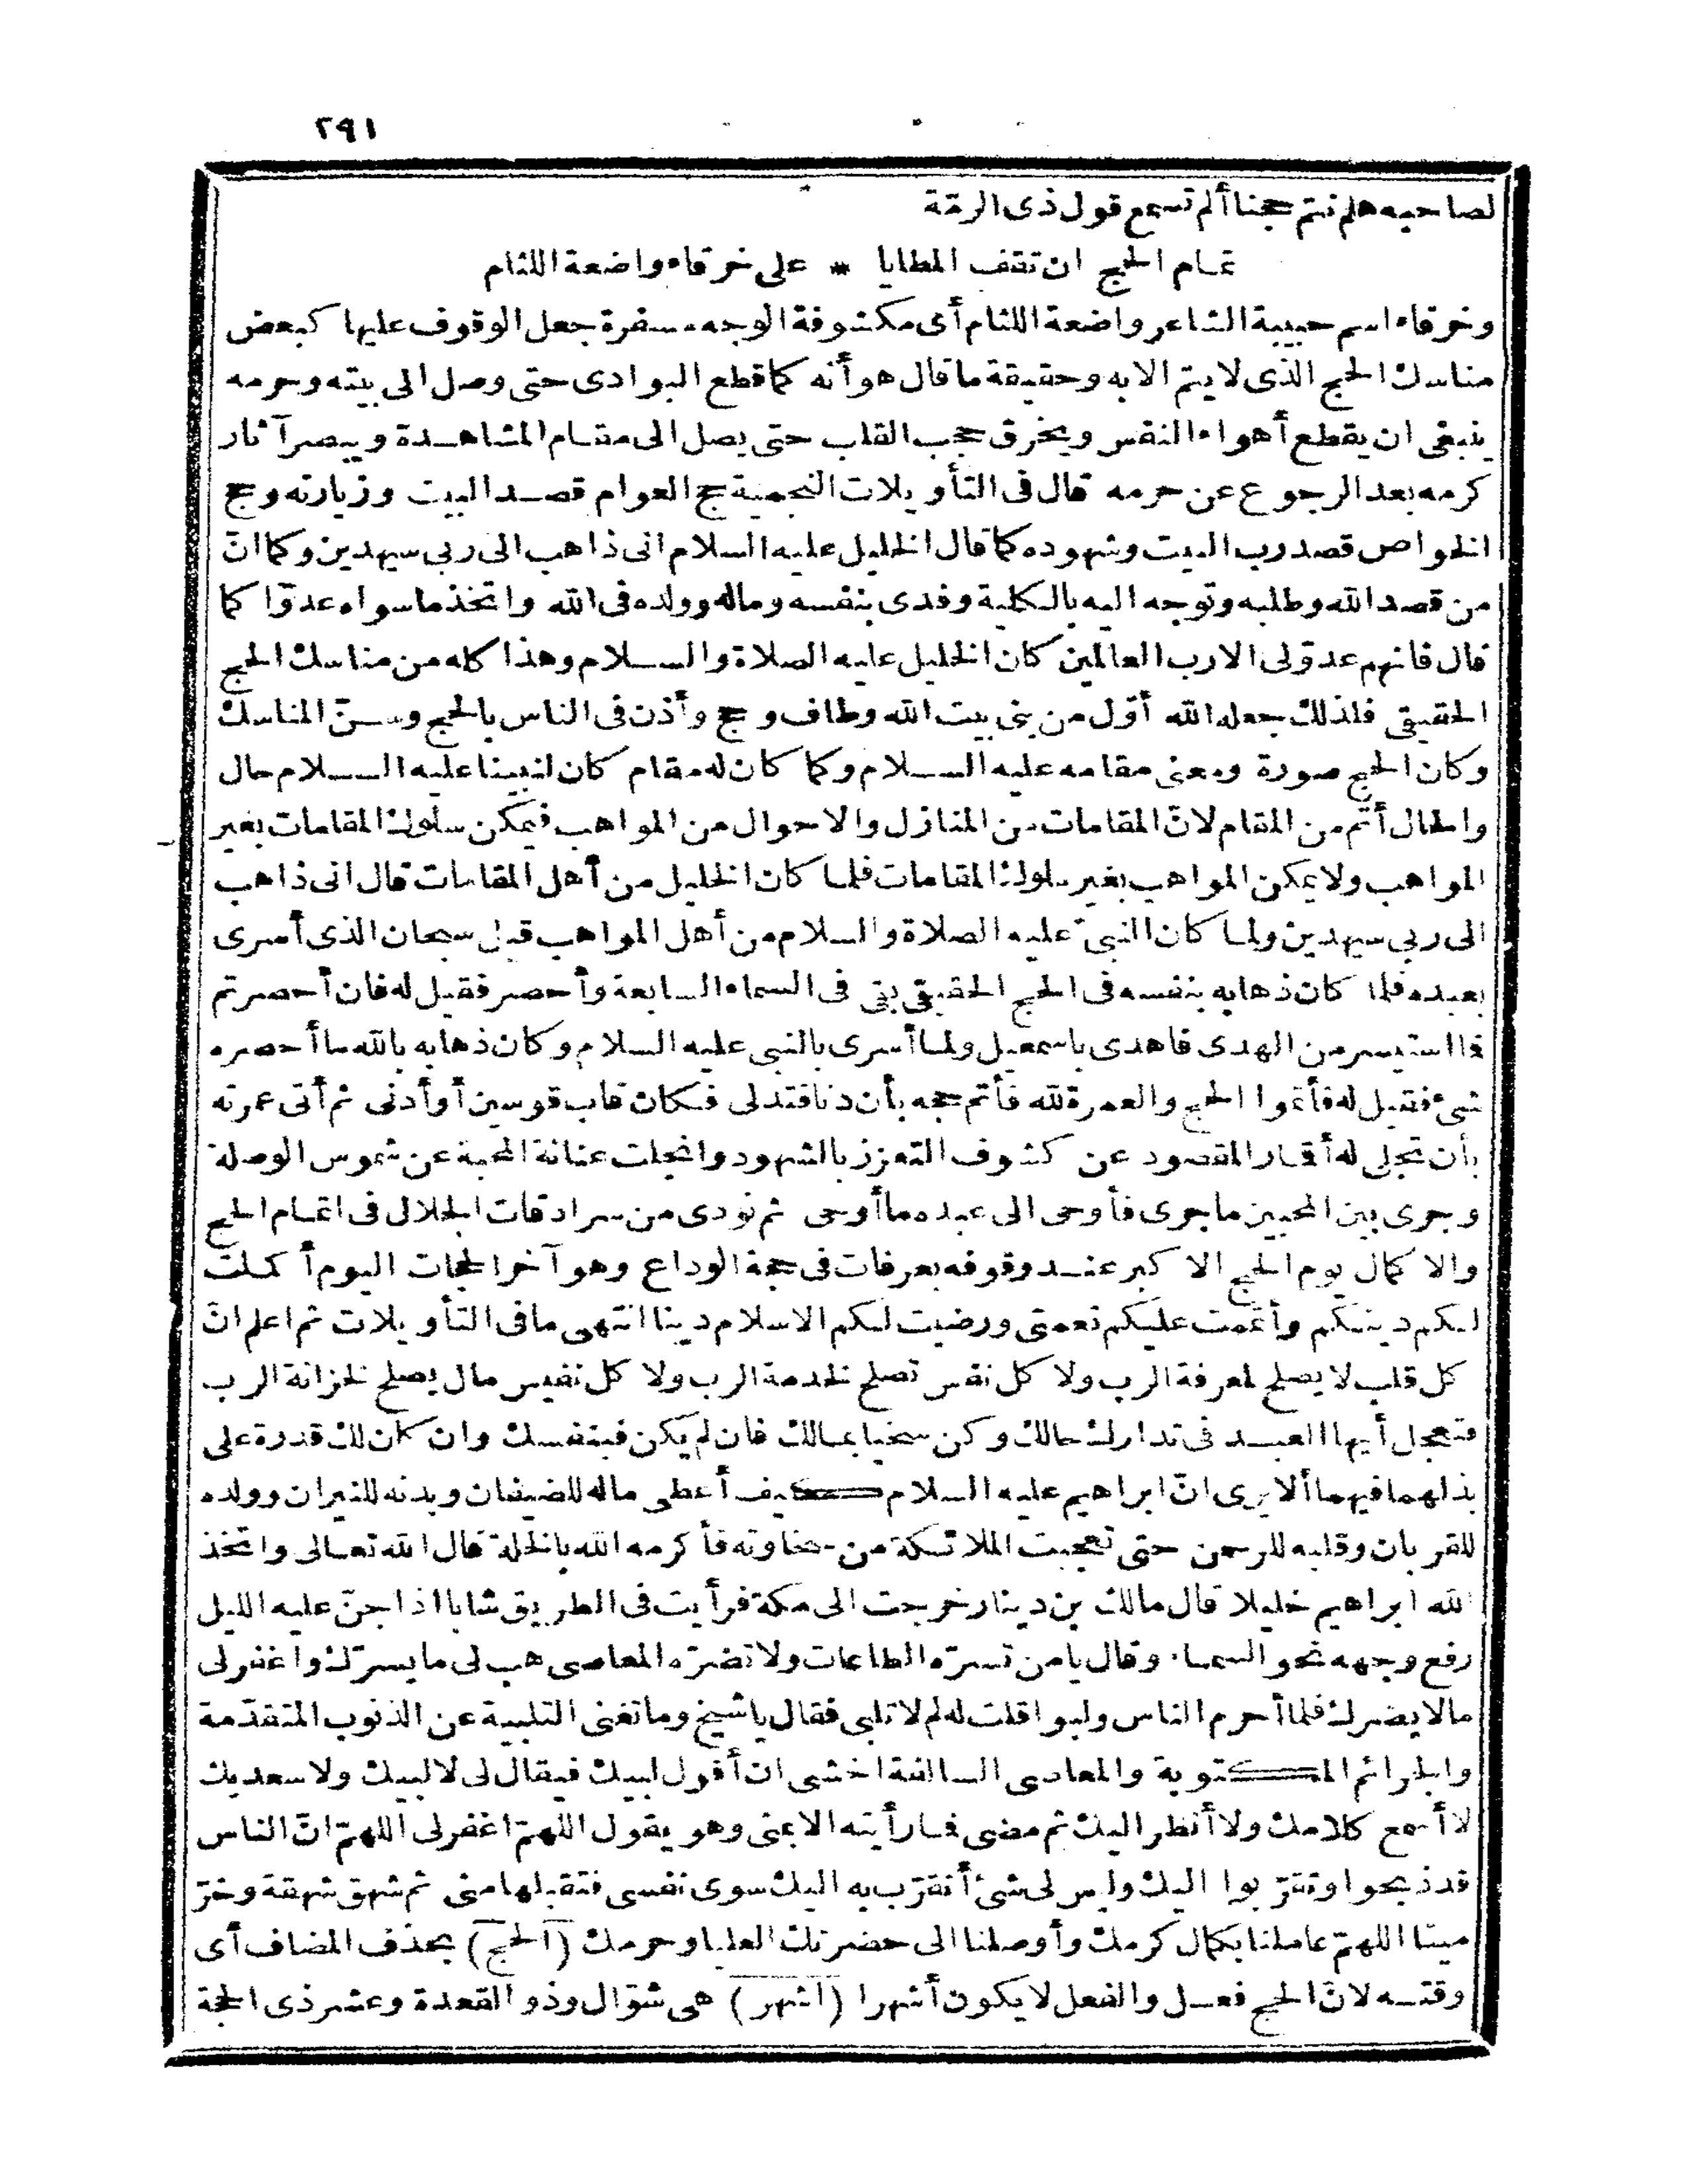 ٢٩١
لصاحبه هلم نتم حجنا ألم تسمع قول ذى الرمّة
تمام الحج ان تقف المطايا * على خرقاء واضعة اللثام
وخرقاء اسم حبيبة الشاعر واضعة اللثام أى مكشوفة الوجه مسفرة جعل الوقوف عليها كبعض
مناسك الحج الذى لا يتم الا به وحقيقة ما قال هو أنه كما قطع البوادى حتى وصل الى بيته وحرمه
ينبغى ان يقطع أهواء النفس ويخرق حجب القلب حتى يصل الى مقام المشاهدة ويبصر آثار
كرمه بعد الرجوع عن حرمه قال فى التأويلات النجمية حج العوام قصد البيت وزيارته وحج
الخواص قصد رب البيت وشهوده كما قال الخليل عليه السلام انى ذاهب الى ربى سيهدين وكما انّ
من قصد الله وطلبه وتوجه اليه بالكلية وفدى بنفسه وماله وولده فى الله واتخذ ما سواه عدوّا كما
قال فانهم عدوّ لى الا رب العالمين كان الخليل عليه الصلاة والسلام وهذا كله من مناسك الحج
الحقيقى فلذلك جعله الله أوّل من بنى بيت الله وطاف وحج وأذن فى الناس بالحج وسنّ المناسك
وكان الحج صورة ومعنى مقامه عليه السلام وكما كان له مقام كان لنبينا عليه السلام حال
والحال أتم من المقام لانّ المقامات من المنازل والاحوال من المواهب فيمكن سلوك المقامات بغير
المواهب ولا يمكن المواهب بغير سلوك المقامات فلما كان الخليل من أهل المقامات قال انى ذاهب
الى ربى سيهدين ولما كان النبىّ عليه الصلاة والسلام من أهل المواهب قيل سبحان الذى أسرى
بعبده فلما كان ذهابه بنفسه فى الحج الحقيقى بقى فى السماء السابعة وأحصر فقيل له فان أحصرتم
فما استيسر من الهدى فاهدى باسمعيل ولما أسرى بالنبى عليه السلام وكان ذهابه بالله ما أحصره
شئ فقيل له فأتموا الحج والعمرة لله فأتم حجه بأن دنا فتدلى فكان قاب قوسين أو أدنى ثم أتى عمرته
بأن تجلى له أقمار المقصود عن كشوف التعزز بالشهود وانجلت عنانة المحبة عن شموس الوصلة
وجرى بين المحبين ما جرى فأوحى الى عبده ما أوحى ثم نودى من سرادقات الجلال فى اتمام الحج
والاكمال يوم الحج الاكبر عند وقوفه بعرفات فى حجة الوداع وهو آخر الحجات اليوم أكملت
لكم دينكم وأتممت عليكم نعمتى ورضيت لكم الاسلام دينا انتهى ما فى التأويلات ثم اعلم انّ
كل قلب لا يصلح لمعرفة الرب ولا كل نفس تصلح لخدمة الرب ولا كل نفيس مال يصلح لخزانة الرب
فتعجل أيها العبد فى تدارك حالك وكن سخيا بمالك فان لم يكن فبنفسك وان كان لك قدرة على
بذلهما فبهما ألا يرى انّ ابراهيم عليه السلام كيف أعطى ماله للضيفان وبدنه للنيران وولده
للقربان وقلبه للرحمن حتى تعجبت الملائكة من سخاوته فأكرمه الله بالخلة قال الله تعالى واتخذ
الله ابراهيم خليلا قال مالك بن دينار خرجت الى مكة فرأيت فى الطريق شابا اذا جنّ عليه الليل
رفع وجهه نحو السماء وقال يا من تسرّه الطاعات ولا تضرّه المعاصى هب لى ما يسرّك واغفر لى
ما لا يضرك فلما أحرم الناس ولبوا قلت له لم لا تلبى فقال يا شيخ وما تغنى التلبية عن الذنوب المتقدّمة
والجرائم المكتوبة والمعاصى السالفة اخشى ان أقول لبيك فيقال لى لا لبيك ولا سعديك
لا أسمع كلامك ولا أنظر اليك ثم مضى فما رأيته الا بمنى وهو يقول اللهمّ اغفر لى اللهمّ انّ الناس
قد ذبحوا وتقرّبوا اليك وليس لى شئ أتقرّب به اليك سوى نفسى فتقبلها منى ثم شهق شهقة وخرّ
ميتا اللهمّ عاملنا بكمال كرمك وأوصلنا الى حضرتك العليا وحرمك (الحج) بحذف المضاف أى
وقته لانّ الحج فعل والفعل لا يكون أشهرا (اشهر) هى شوّال وذو القعدة وعشر ذى الحجة